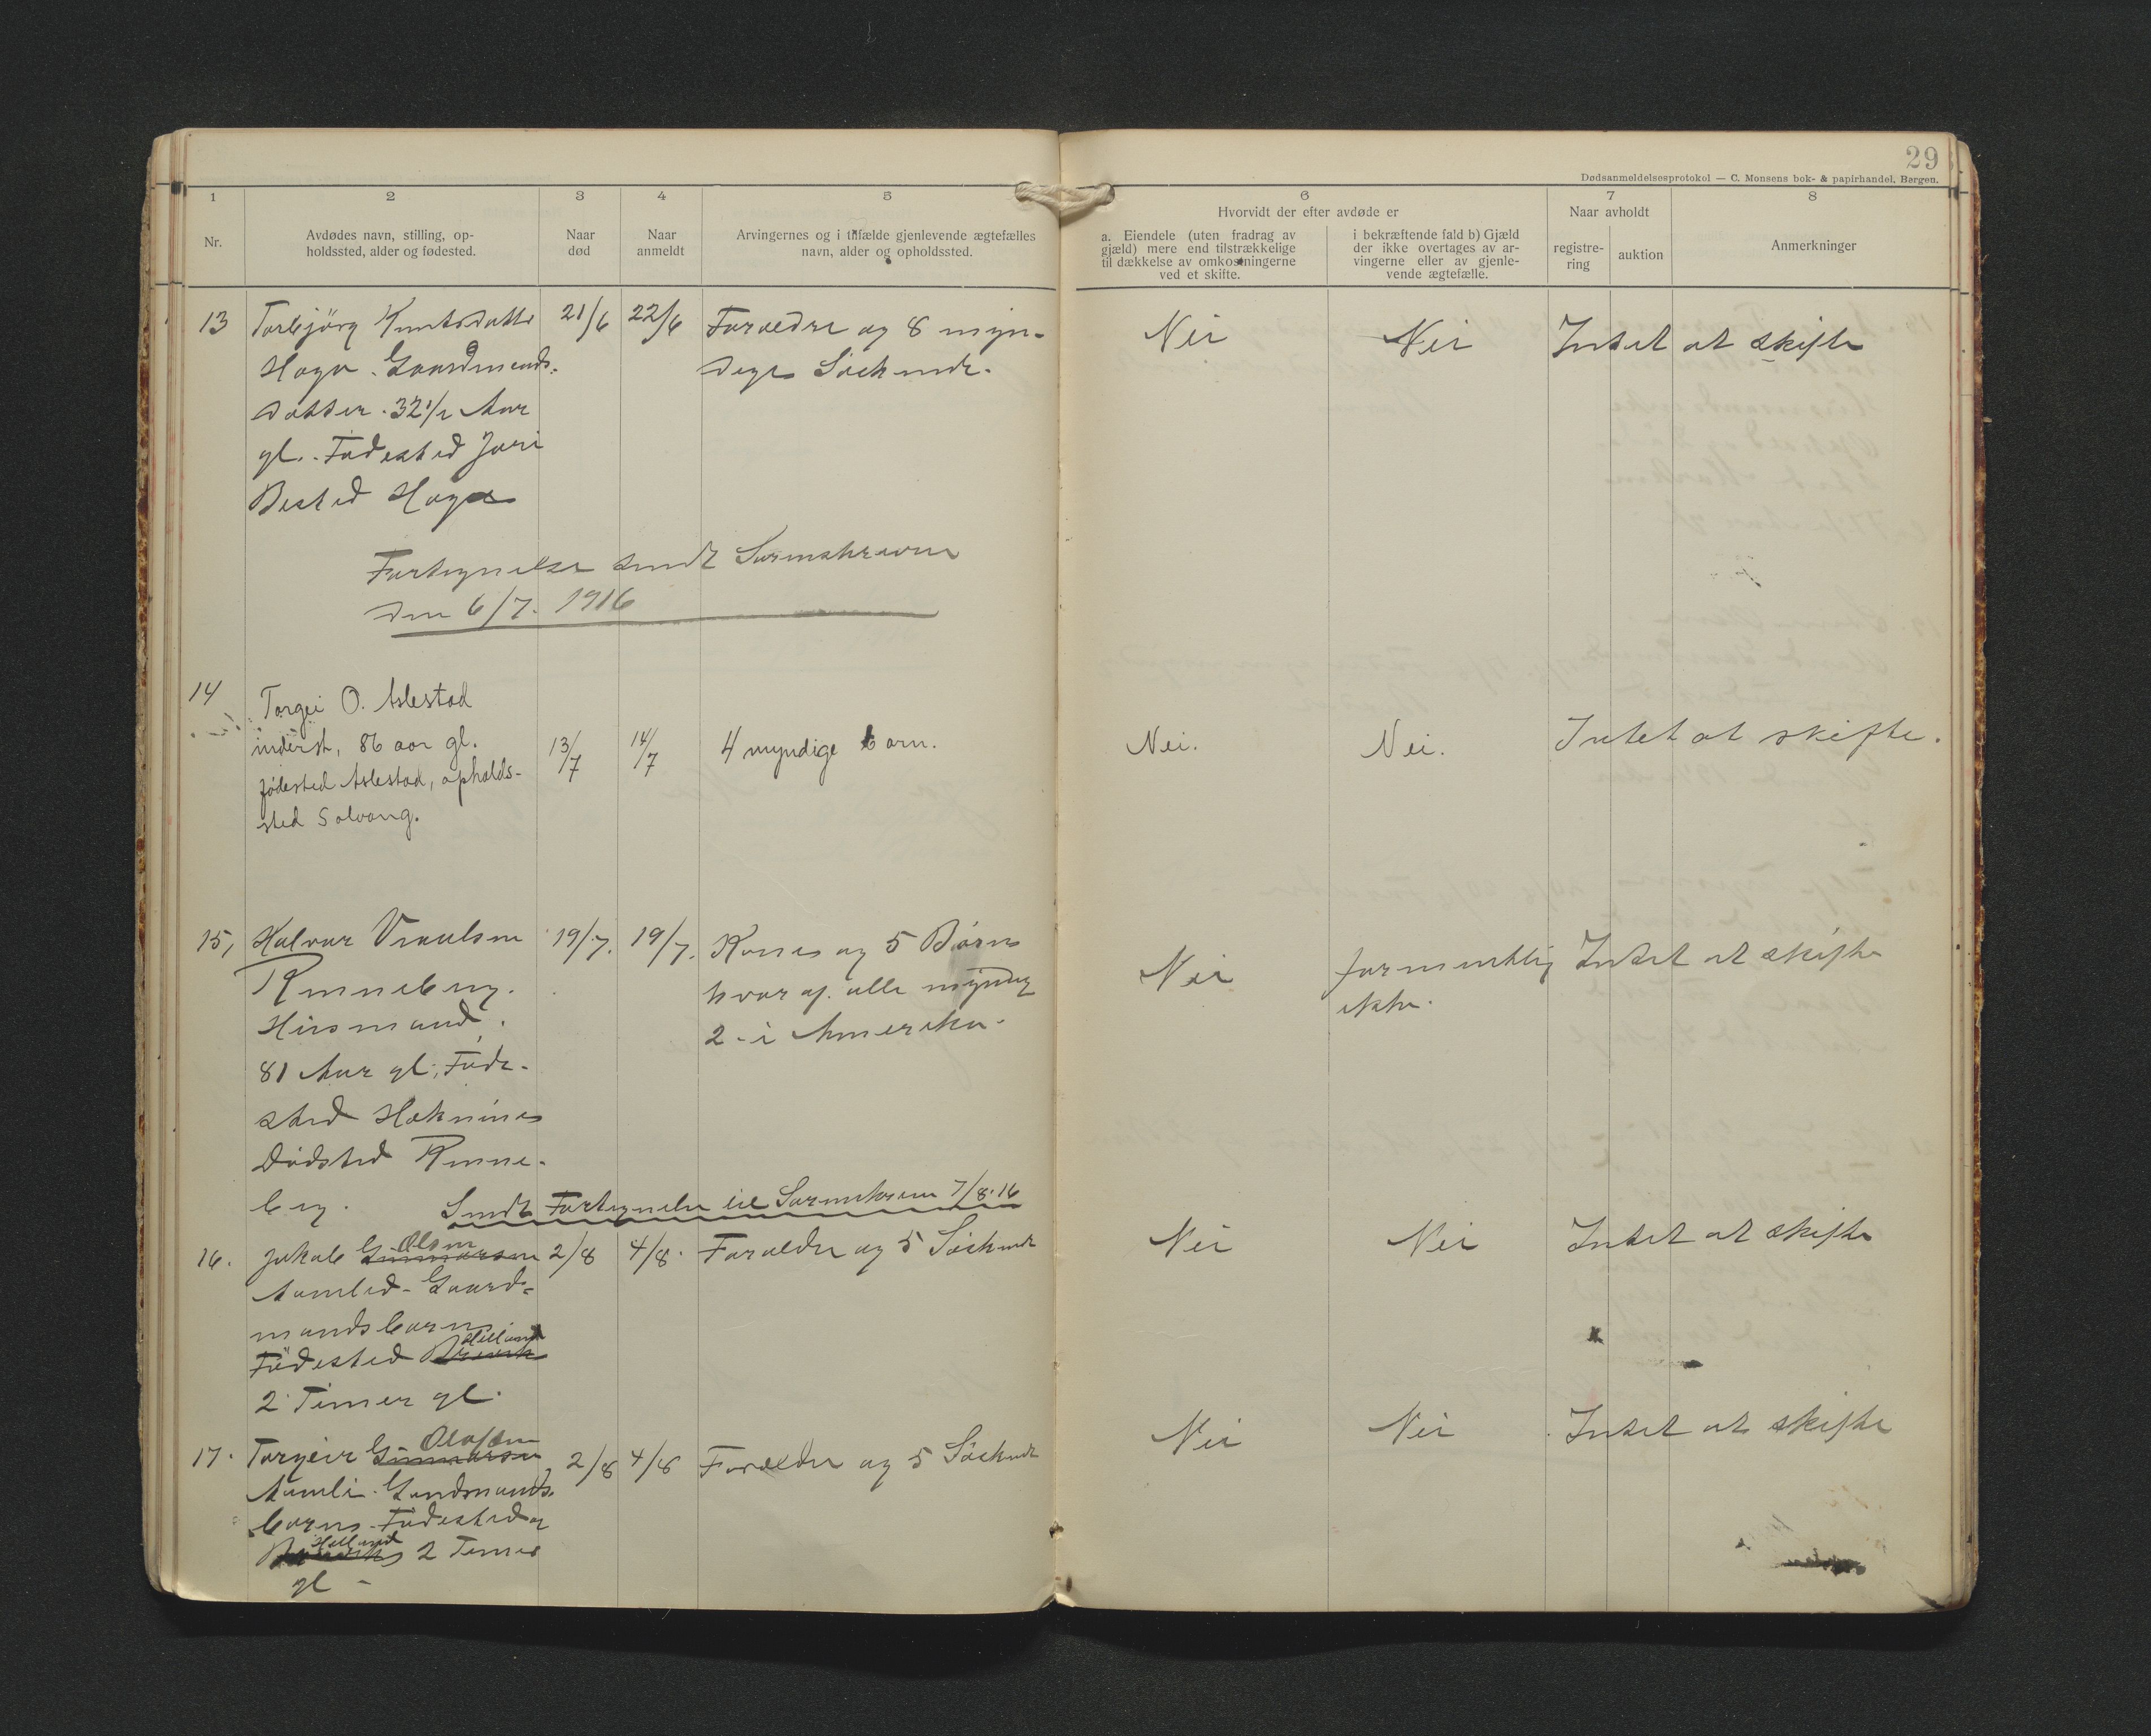 29
Dødsanmeldelsesprotokol — C. Monsens bok- & papirhandel, Bergen.
1
2
3
4
5
6
7
8
Nr.
Avdødes navn, stilling, op-
holdssted, alder og fødested.
Naar
død
Naar
anmeldt
Arvingernes og i tilfælde gjenlevende ægtefælles
navn, alder og opholdssted.
Hvorvidt der efter avdøde er
a. Eiendele (uten fradrag av
gjæld) mere end tilstrækkelige
til dækkelse av omkostningerne
ved et skifte.
i bekræftende fald b) Gjæld
der ikke overtages av ar-
vingerne eller av gjenle-
vende ægtefælle.
Naar avholdt
registre-
ring
auktion
Anmerkninger
13
Torbjörg Knutsdatte
Haga. Gaardmands-
datter. 32 1/2 Aar
gl.. Födested Jori
Bosted Haga
21/6
22/6
Foraeldre og 8 myn-
dige Söskende.
Nei
Nei
Intet at skifte
Fortegnelse sendt Sorenskriveren
den 6/7. 1916
14
Torgei O. Aslestad
inderst, 86 aar gl.
födested Aslestad, opholds-
sted Solvang.
13/7
14/7
4 myndige barn.
Nei.
Nei.
Intet at skifte.
15,
Halvor Vraalsen
Rinneberg.
Huusmand.
81 Aar gl. Föde-
sted
Dödsted Rinne-
berg.
19/7.
19/7.
Kone og 5 Börn
hvor af. alle myndig
2 - i Amerika.
Nei
formentlig
ikke.
Intet at skifte
Sendt Fortegnelse til Sorenskriveren 7/8.16
16.
Olsen
Jakob Gunnarsen
Aamlid - Gaard-
mandsbarn.
Helland
Födested
2 Timer gl.
2/8
4/8.
Foraeldre og 5 Söskende
Nei
Nei
Intet at skifte
17.
Olafsen
Torgeir Gunnarsen
Aamli. Gardmands-
barn. Födested
Helland
2 Timer
gl -
2/8
4/8
Foraeldre og 5 Söskende
Nei
Nei
Intet at skifte